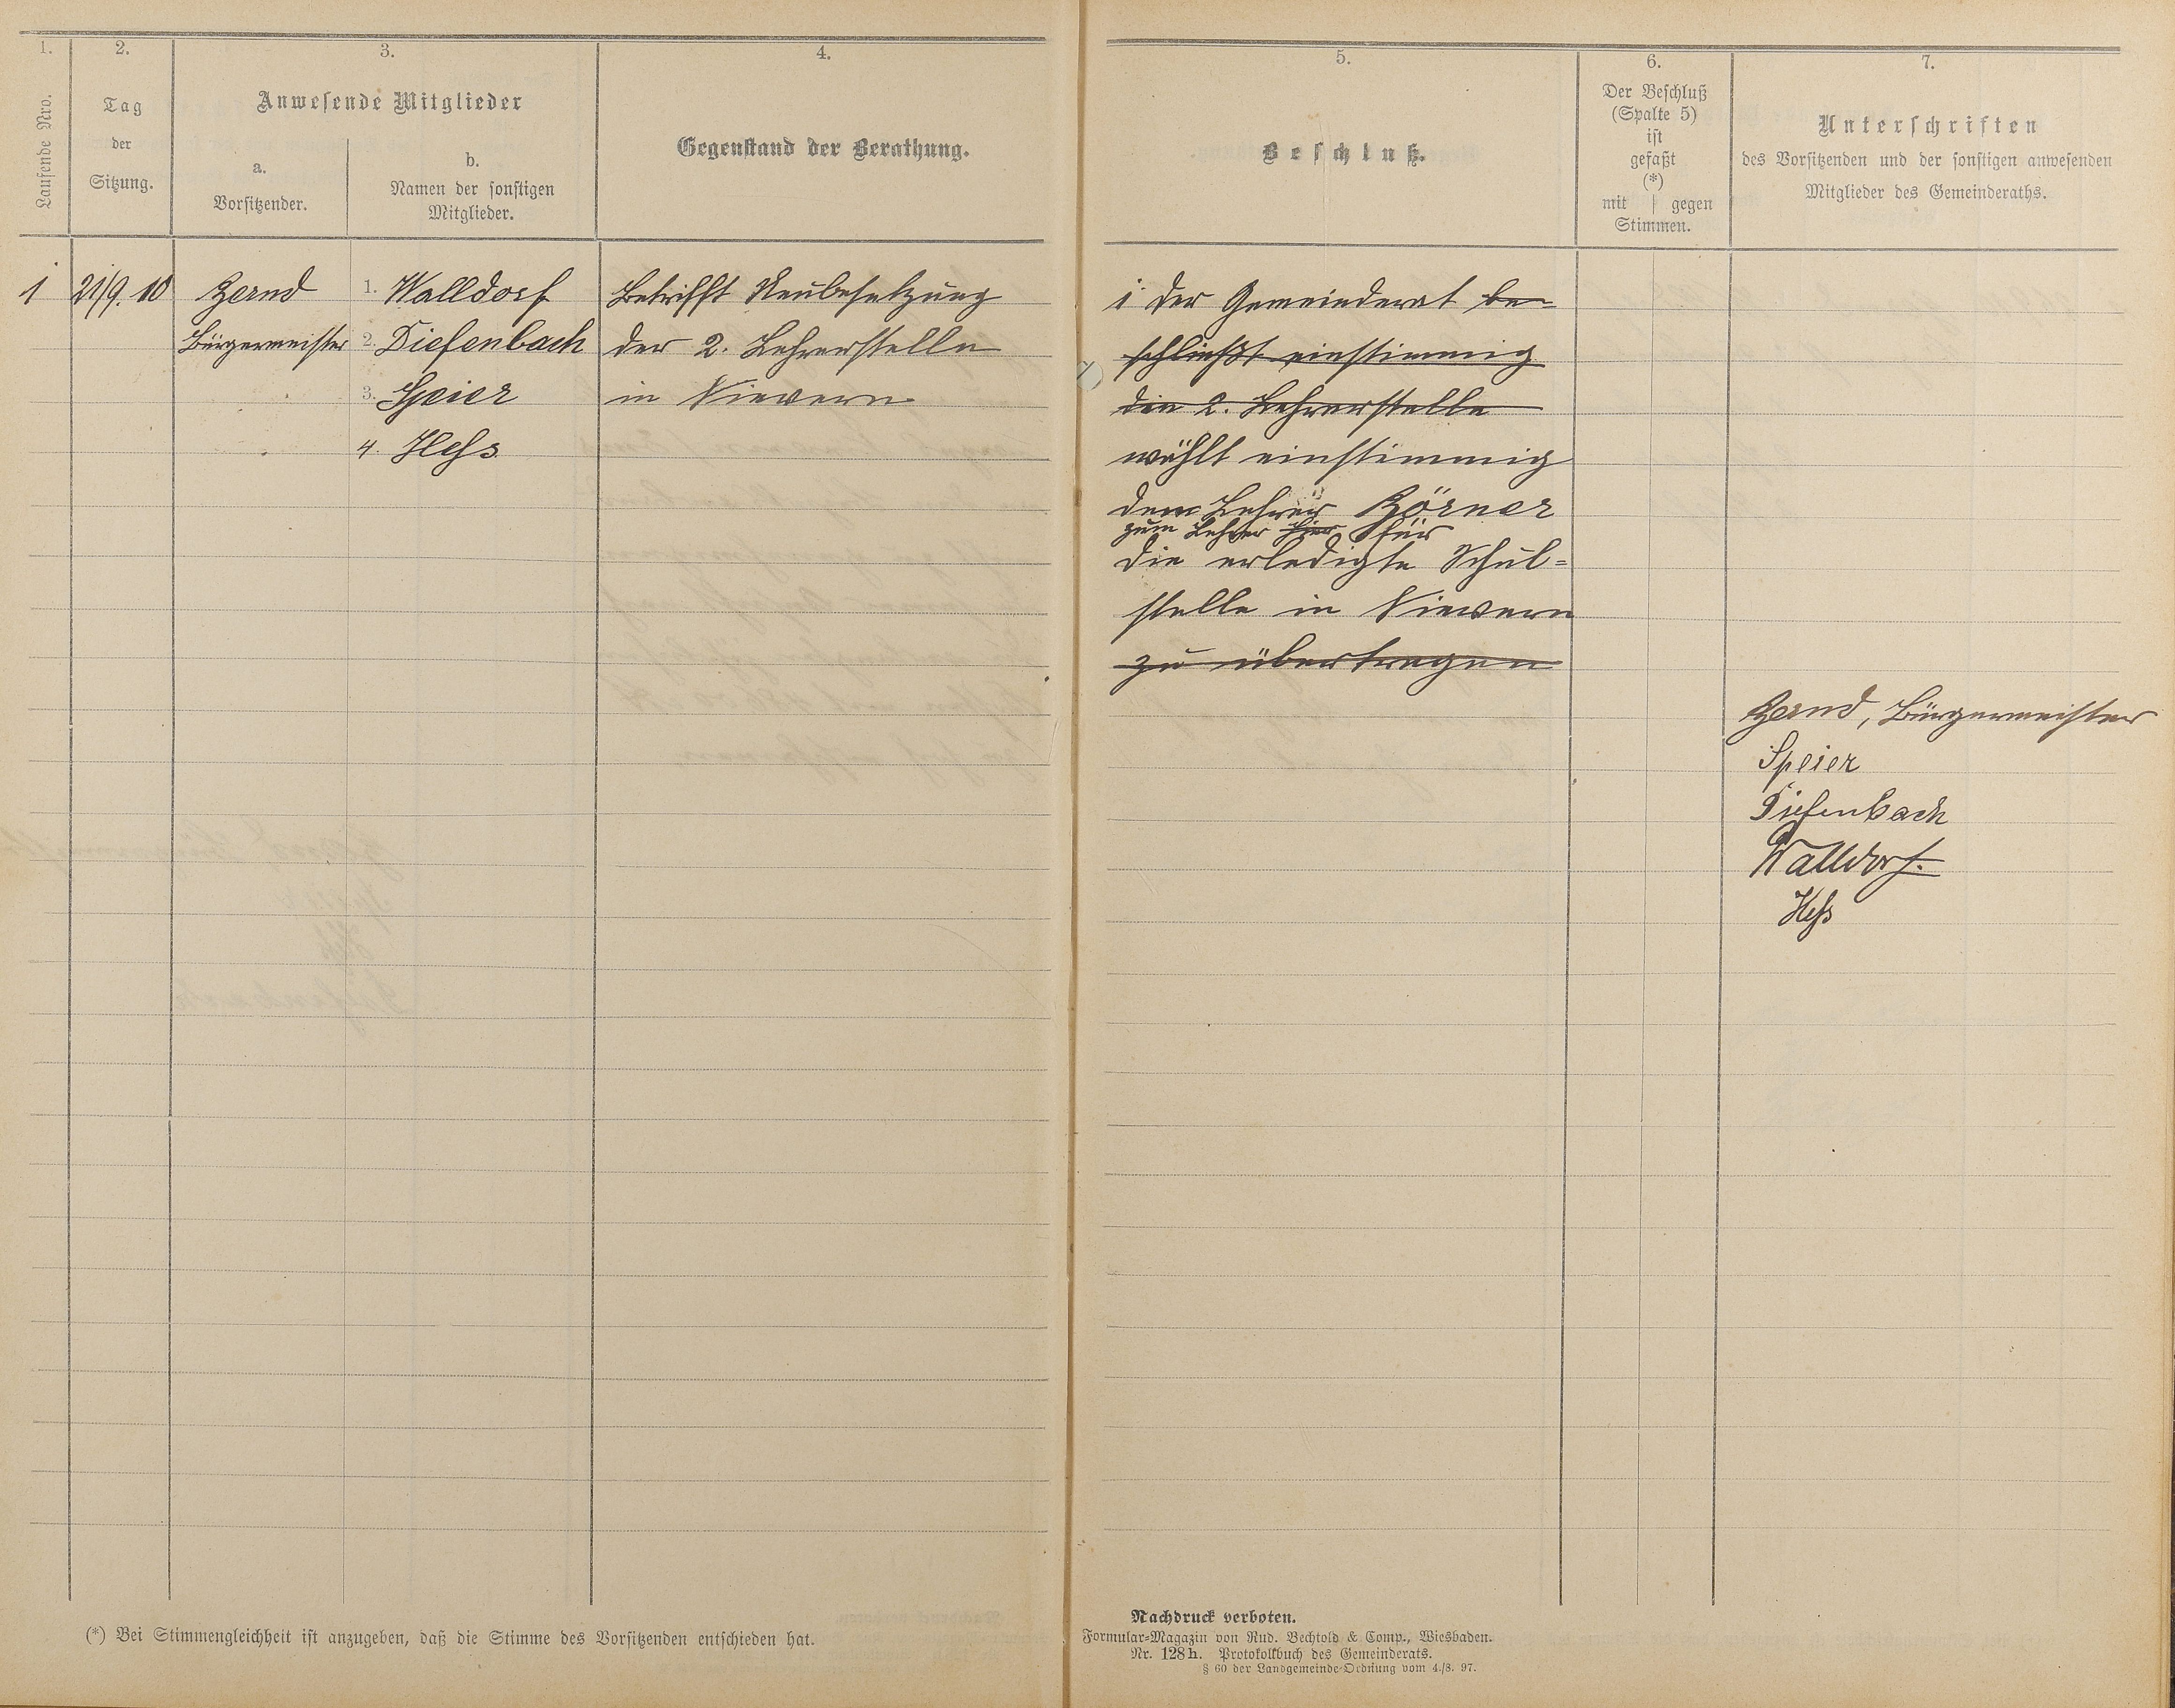 1.
2.
3.
4.
Laufende Nro.
Tag
der
Sitzung.
Anwesende Mitglieder
a.
Vorsitzender.
b.
Namen der sonstigen
Mitglieder.
Gegenstand der Berathung.
1 21/9. 10 Zernd 1. Walldorf Betrifft Neubesetzung
Bürgermeister 2. Diefenbach der 2. Lehrerstelle
3. Speier in Nievern
4. Heſs
(*) Bei Stimmengleichheit ist anzugeben, daß die Stimme des Vorsitzenden entschieden hat.
5.
6.
7.
Beschluß.
Der Beschluß
(Spalte 5)
ist
gefaßt
(*)
mit | gegen
Stimmen.
Unterschriften
des Vorsitzenden und der sonstigen anwesenden
Mitglieder des Gemeinderaths.
1 Der Gemeinderat be-
schließt einstimmig
die 2. Lehrerstelle
wählt einstimmig
dem Lehrer Körner
zum Lehrer hier für
die erledigte Schul=
stelle in Nievern
zu übertragen
Zernd, Bürgermeister
Speier
Diefenbach
Walldorf.
Heſs
Nachdruck verboten.
Formular-Magazin von Rud. Bechtold & Comp., Wiesbaden.
Nr. 128h. Protokollbuch des Gemeinderats.
§ 60 der Landgemeinde-Ordnung vom 4./8. 97.